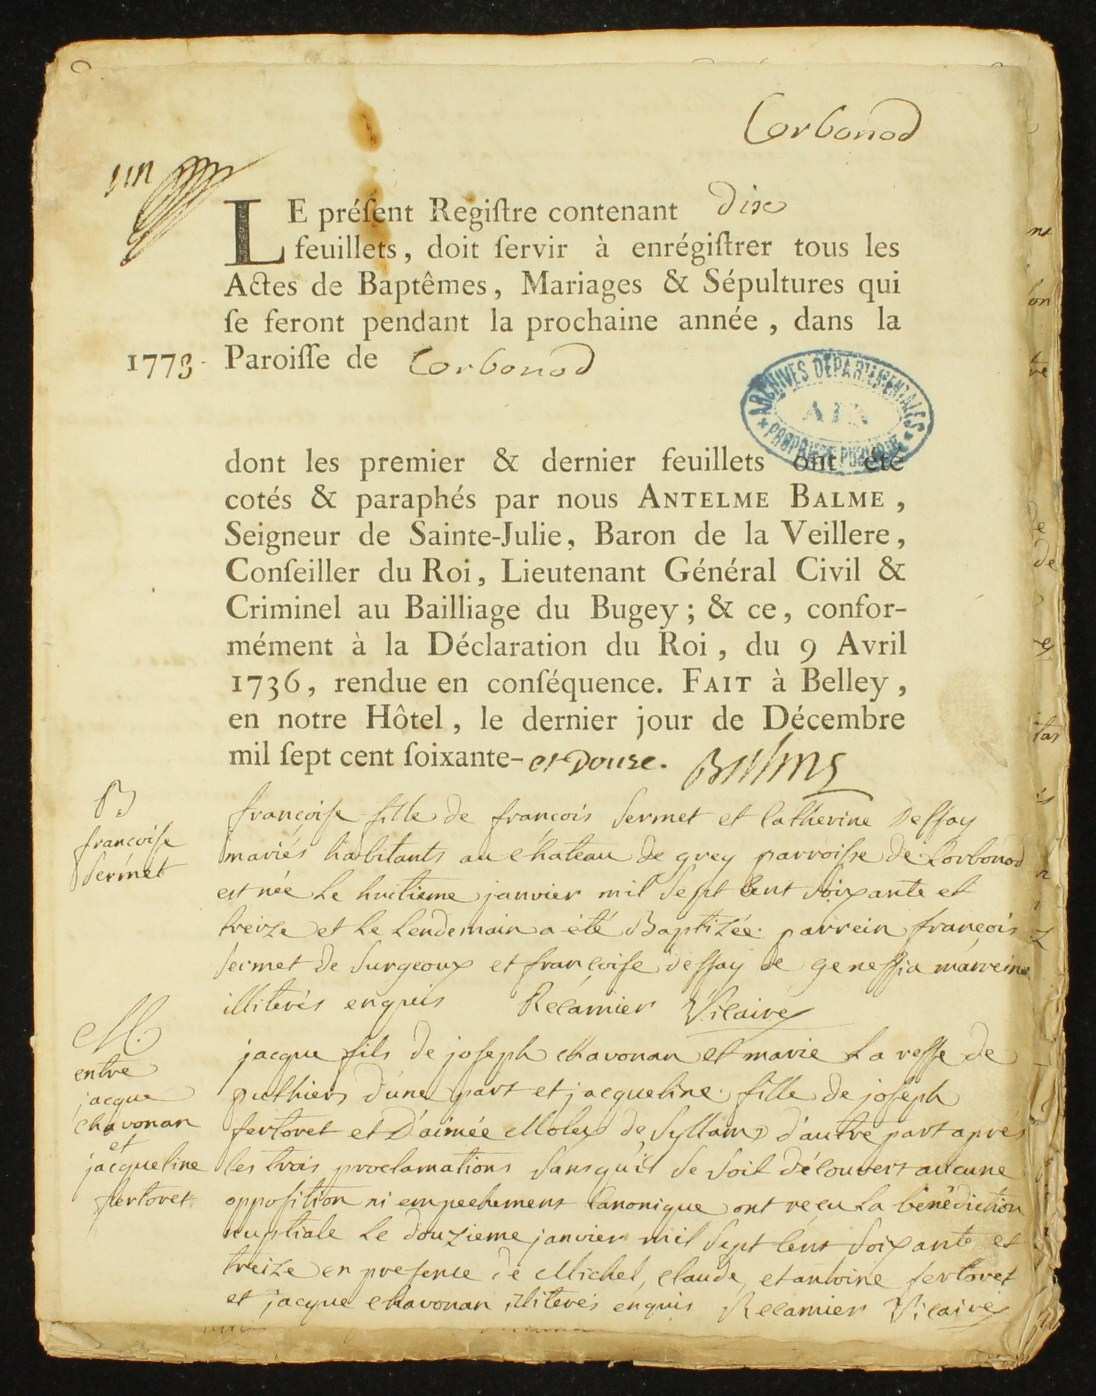 Corbonod
un
LE préſent Regiſtre contenant dix
feuillets, doit ſervir à enrégiſtrer tous les
Actes de Baptêmes, Mariages & Sépultures qui
ſe feront pendant la prochaine année, dans la
1773. Paroiſſe de Corbonod
ARCHIVES DÉPARTEMENTALES
AIN
PROPRIÉTÉ PUBLIQUE
dont les premier & dernier feuillets ont été
cotés & paraphés par nous ANTELME BALME,
Seigneur de Sainte-Julie, Baron de la Veillere,
Conſeiller du Roi, Lieutenant Général Civil &
Criminel au Bailliage du Bugey; & ce, confor-
mément à la Déclaration du Roi, du 9 Avril
1736, rendue en conſéquence. FAIT à Belley,
en notre Hôtel, le dernier jour de Décembre
mil ſept cent ſoixante-et Douze. Balme
B
francoise
Sermet
françoise fille de françois Sermet et Catherine dessay
mariés habitants au Chateau de grey parroisse de Corbonod
est née Le huitieme janvier mil Sept Cent Soixante et
treize et Le Lendemain a été Baptizée. parrein françois
Sermet de Surgeoux et françoise dessay de genessia marreine
illiterés enquis Recamier Vicaire
M.
entre
jacque
Chavonan
et
jacqueline
fertoret
jacque fils de joseph Chavonan et marie La resse de
puthier d'une part et jacqueline fille de joseph
fertoret et D'aimée Moley de Syllam d'autre part aprés
Les trois proclamations Sans qu'il Se Soit découvert aucune
opposition ni empechement Canonique ont reçu La bénédiction
nuptiale Le douzieme janvier mil Sept Cent Soixante et
treize en presence de Michel, Claude, et antoine fertoret
et jacque Chavonan illiterés enquis Recamier Vicaire